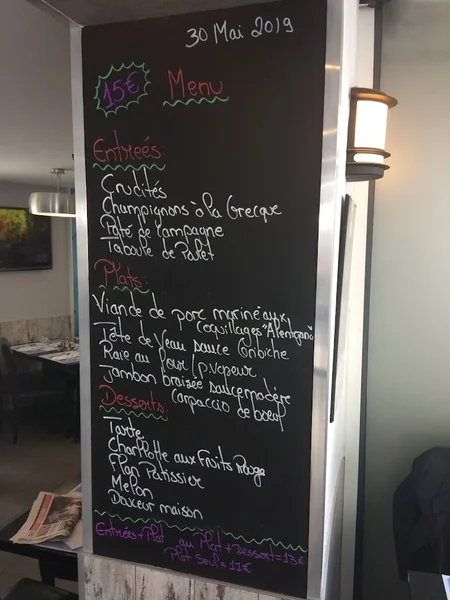 30 Mai 2019
15€
Menu
Entreés:
Crudités
Champignons à la Grecque
Pâté de Campagne
Taboulé de Palet
Plats:
Viande de porc mariné aux
coquillages "Alentejana"
Tête de Veau sauce Gribiche
Raie au Four / p. vapeur
Jambon braisée sauce madère
Carpaccio de bœuf
Desserts:
Tarte
Charlotte aux Fruits Rouge
Flan Patissier
Melon
Douceur maison
Entrées + Plat ou Plat + Dessert = 13€
Plat Seul = 11€